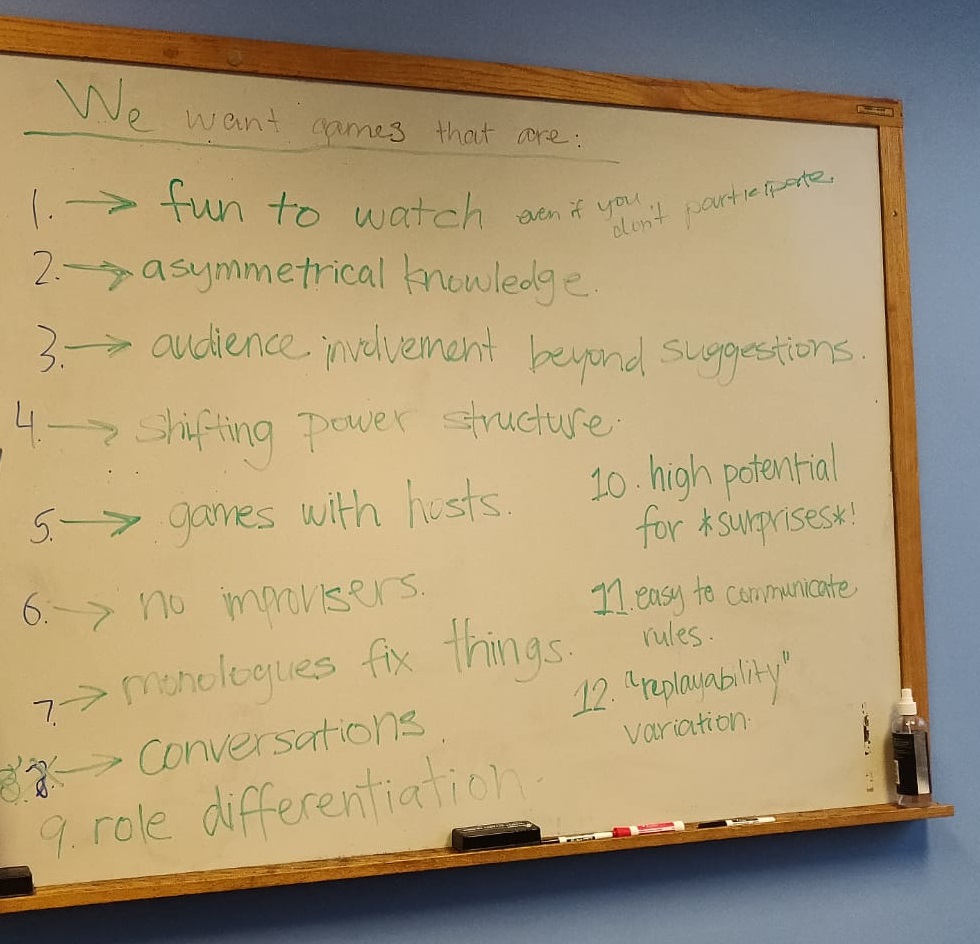 We want games that are:
1. → fun to watch even if you don't participate.
2. → asymmetrical knowledge.
3. → audience involvement beyond suggestions.
4. → shifting power structure.
5. → games with hosts.
6. → no improvisers.
7. → monologues fix things.
8. → conversations.
9. role differentiation.
10. high potential
for *surprises*!
11. easy to communicate
rules.
12. "replayability"
variation.